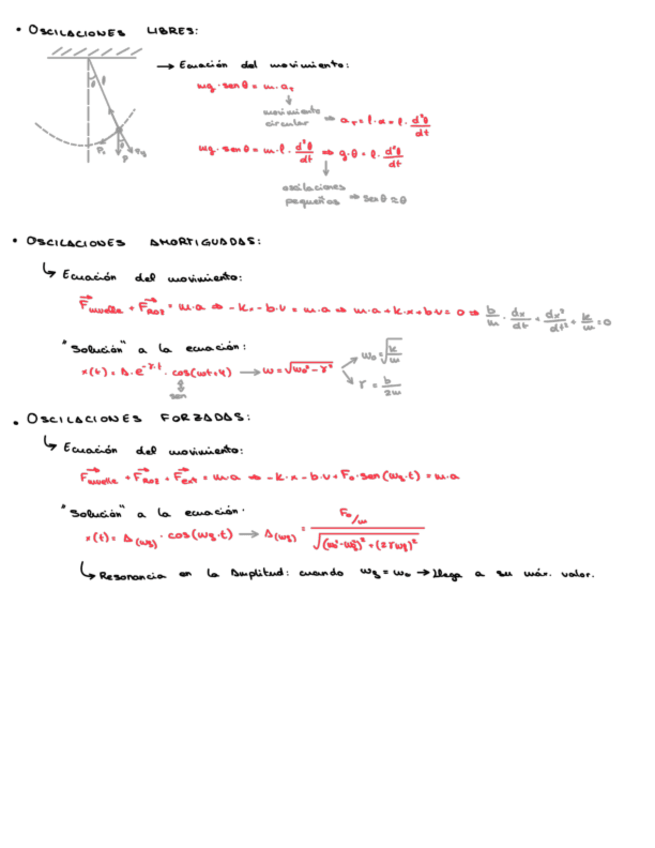 • OSCILACIONES LIBRES:
→ Ecuación del movimiento:
mg · sen θ = m · aₜ
movimiento
circular ⇒ aₜ = l · α = l · d²θ/dt
mg · sen θ = m · l · d²θ/dt ⇒ g · θ = l · d²θ/dt
oscilaciones
pequeñas ⇒ sen θ ≈ θ
• OSCILACIONES AMORTIGUADAS:
↳ Ecuación del movimiento:
F muelle + F Roz = m · a ⇒ - k · x - b · v = m · a ⇒ m · a + k · x + b · v = 0 ⇒ b/m · dx/dt + dx²/dt² + k/m = 0
"Solución" a la ecuación:
x(t) = A · e^-γ·t · cos(ωt + φ) → ω = √(ω₀² - γ²)
ω₀ = √(k/m)
γ = b/2m
sen
• OSCILACIONES FORZADAS:
↳ Ecuación del movimiento:
F muelle + F Roz + F ext = m · a ⇒ - k · x - b · v + F₀ · sen (ωf · t) = m · a
"Solución" a la ecuación:
x(t) = A(ωf) · cos(ωf · t) → A(ωf) = F₀/m / √((ω₀² - ωf²)² + (2γωf)²)
↳ Resonancia en la Amplitud: cuando ωf = ω₀ → llega a su máx. valor.